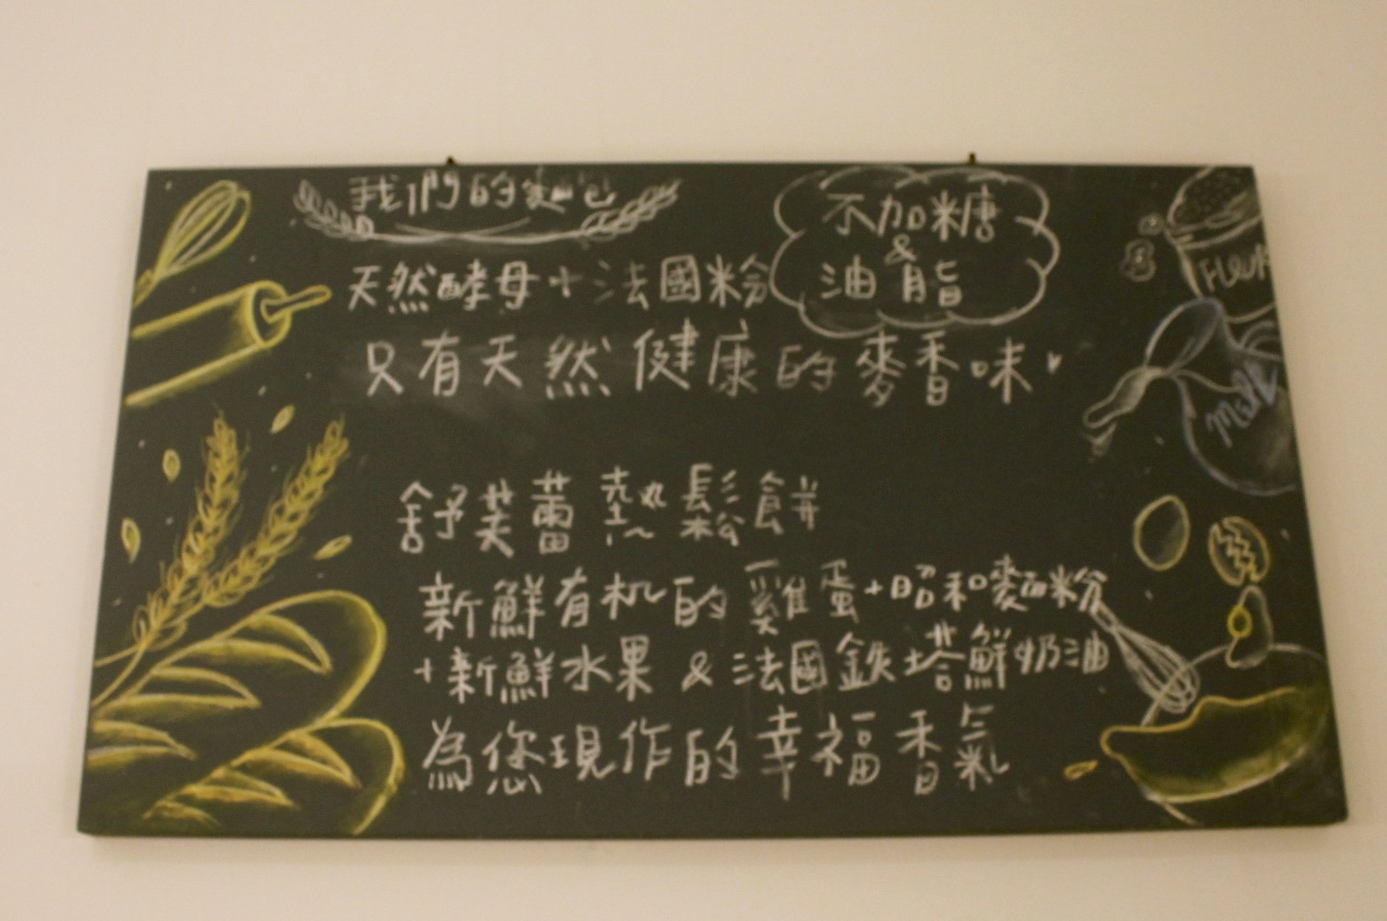 我們的麵包
不加糖
&
油脂
天然酵母+法國粉
只有天然健康的麥香味
舒芙蕾熱鬆餅
新鮮有机的雞蛋+昭和麵粉
+新鮮水果 & 法國鉄塔鮮奶油
為您現作的幸福香氣
Milk